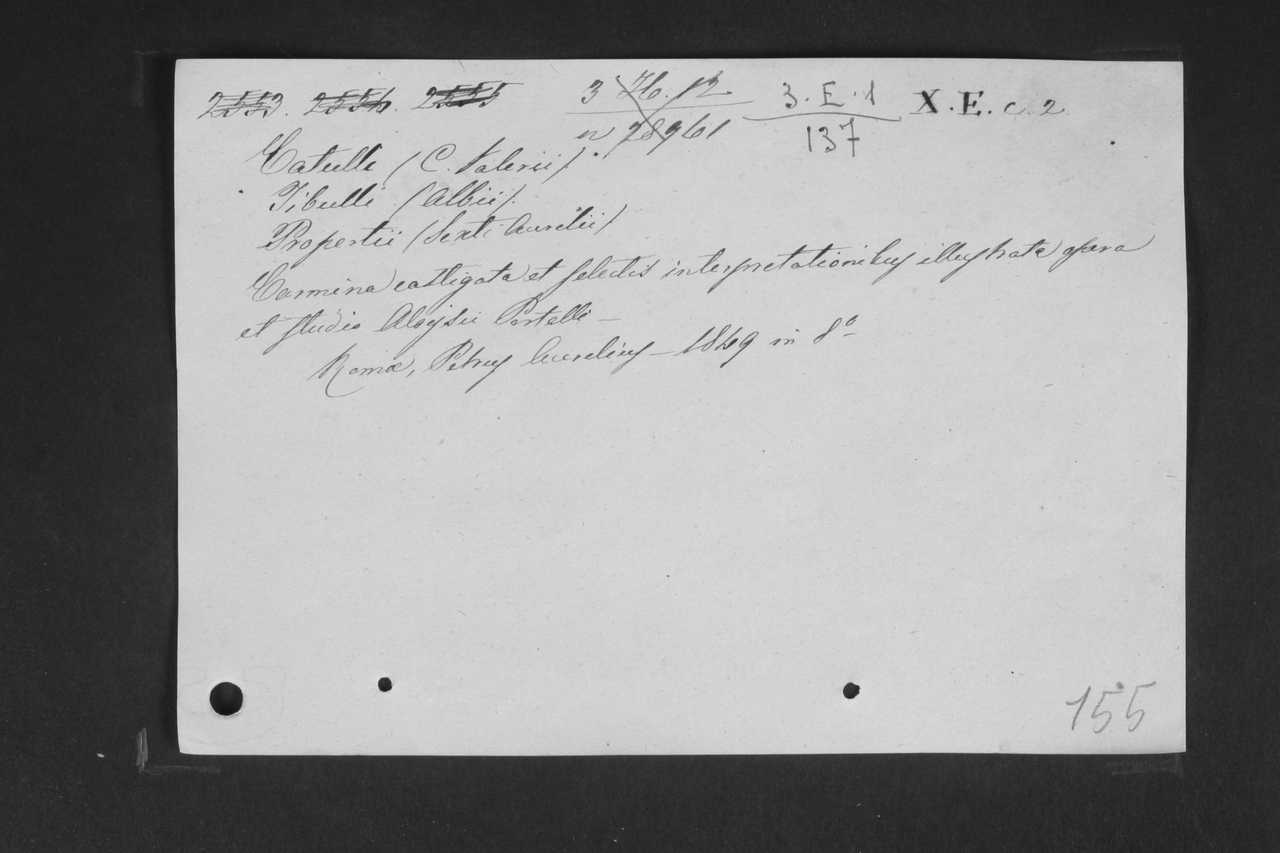 2553. 2554. 2555 3 H. 12 3. E. 1 X.E. c. 2
n 28961 137
Catulli (C. Valerii).
Tibulli (Albii).
Propertii (Sexti Aurelii)
Carmina castigata et selectis interpretationibus illustrata opera
et studio Aloysii Portelli —
Romæ, Petrus Aurelius — 1849 in 8º
155